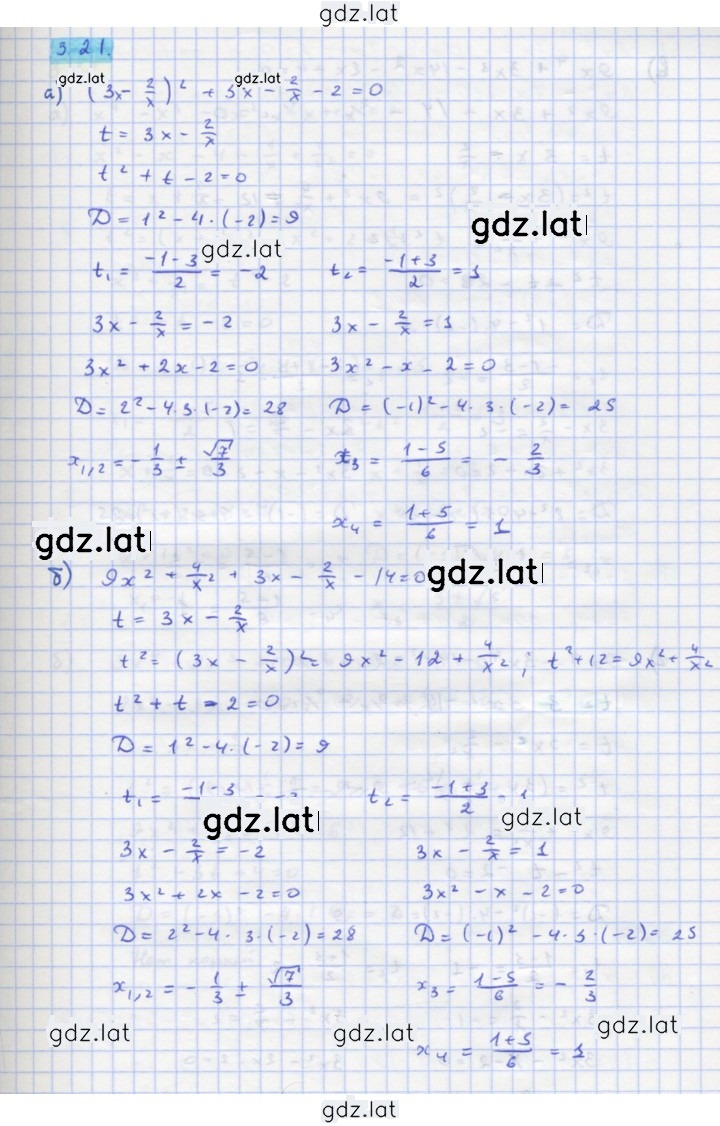 gdz.lat
3.21.
gdz.lat gdz.lat
а) (3x - 2/x)² + 3x - 2/x - 2 = 0
t = 3x - 2/x
t² + t - 2 = 0
D = 1² - 4 · (-2) = 9
gdz.lat
gdz.lat
t₁ = (-1-3)/2 = -2 t₂ = (-1+3)/2 = 1
3x - 2/x = -2 3x - 2/x = 1
3x² + 2x - 2 = 0 3x² - x - 2 = 0
D = 2² - 4 · 3 · (-2) = 28 D = (-1)² - 4 · 3 · (-2) = 25
x₁,₂ = - 1/3 ± √7/3 x₃ = (1-5)/6 = - 2/3
x₄ = (1+5)/6 = 1
gdz.lat
б) 9x² + 4/x² + 3x - 2/x - 14 = 0
gdz.lat
t = 3x - 2/x
t² = (3x - 2/x)² = 9x² - 12 + 4/x² ; t² + 12 = 9x² + 4/x²
t² + t - 2 = 0
D = 1² - 4 · (-2) = 9
t₁ = -1-3 t₂ = (-1+3)/2 - 1
gdz.lat gdz.lat
3x - 2/x = -2 3x - 2/x = 1
3x² + 2x - 2 = 0 3x² - x - 2 = 0
D = 2² - 4 · 3 · (-2) = 28 D = (-1)² - 4 · 3 · (-2) = 25
x₁,₂ = - 1/3 ± √7/3 x₃ = (1-5)/6 = - 2/3
gdz.lat gdz.lat gdz.lat
x₄ = (1+5)/6 = 1
gdz.lat